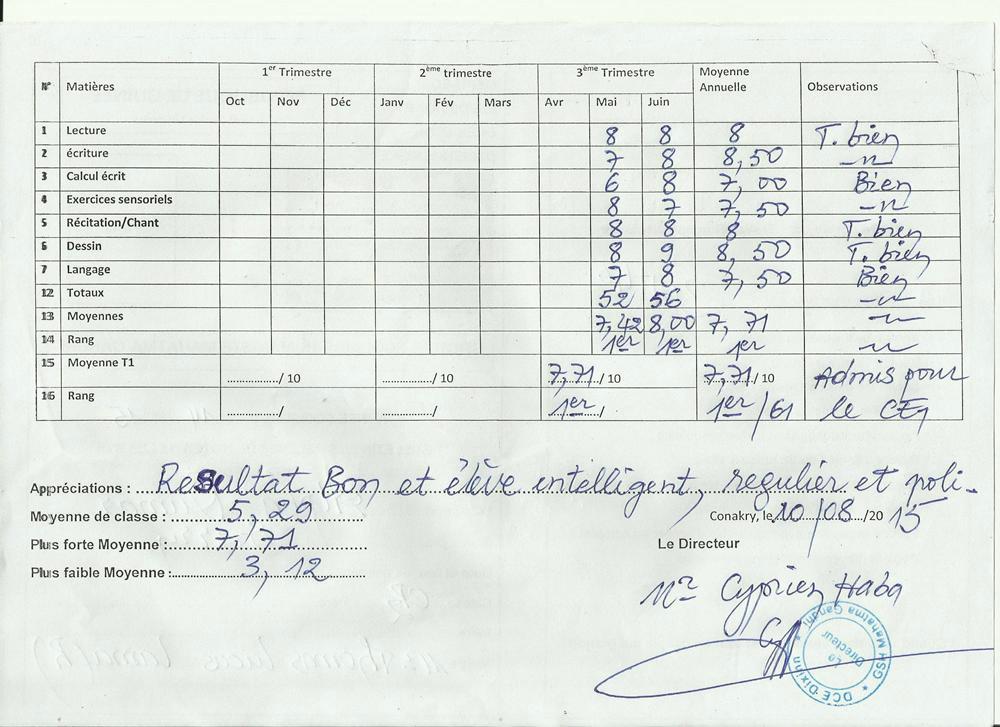 N° Matières 1er Trimestre 2ème trimestre 3ème Trimestre Moyenne Annuelle Observations
Oct Nov Déc Janv Fév Mars Avr Mai Juin
1 Lecture 8 8 8 T. bien
2 écriture 7 8 8,50 -"-
3 Calcul écrit 6 8 7,00 Bien
4 Exercices sensoriels 8 7 7,50 -"-
5 Récitation/Chant 8 8 8 T. bien
6 Dessin 8 9 8,50 T. bien
7 Langage 7 8 7,50 Bien
12 Totaux 52 56 -"-
13 Moyennes 7,42 8,00 7,71 -"-
14 Rang 1er 1er 1er -"-
15 Moyenne T1 ............../ 10 ............../ 10 7,71/ 10 7,71/ 10 Admis pour
16 Rang ............../ ............../ 1er/ 1er/61 le CE1
Appréciations : Resultat Bon et élève intelligent, regulier et poli.
Moyenne de classe : 5,29
Conakry, le 10/08/2015
Plus forte Moyenne : 7,71
Le Directeur
Plus faible Moyenne : 3,12
Mr Cyprien Haba
GSP Mahatma Gandhi * DCE Dixinn *
Le
Directeur